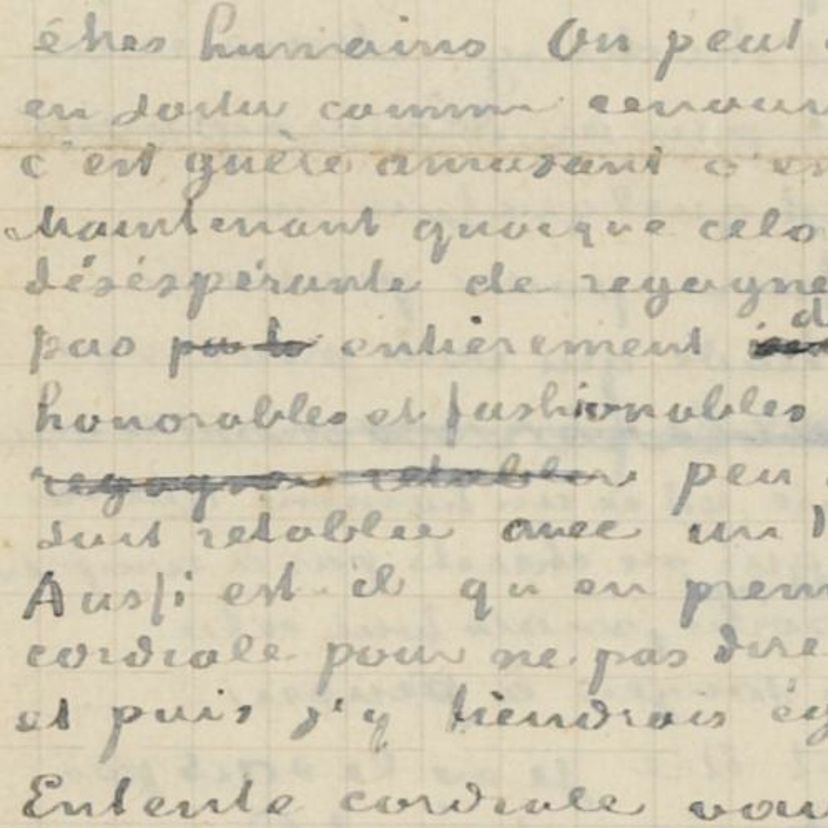 êtres humains On peut
en sortir comme
c'est guère amusant c'es
Maintenant quoique cela
désésperante de regagne
pas entièrement d
honorables et fashionables
regagner retablir peu
soit retablie avec un
Aussi est-il qu'en prem
cordiale pour ne pas dire
et puis j'y tiendrais ég
Entente cordiale vou